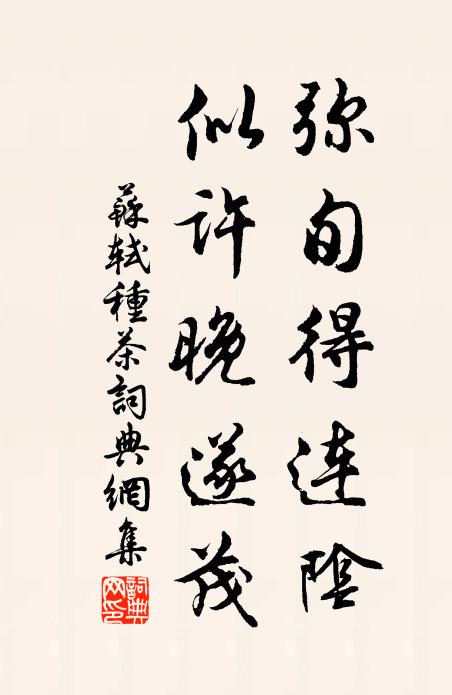 弥旬得连阴
似许晚遂茂
蘇軾種茶詞典網集
詞典網印